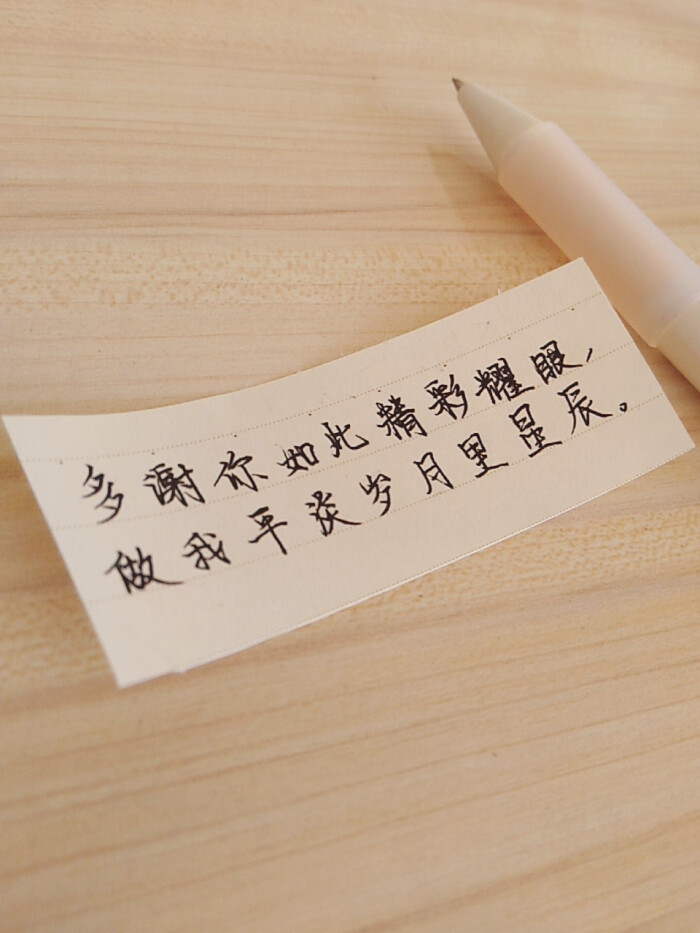 多谢你如此精彩耀眼,
做我平淡岁月里星辰。